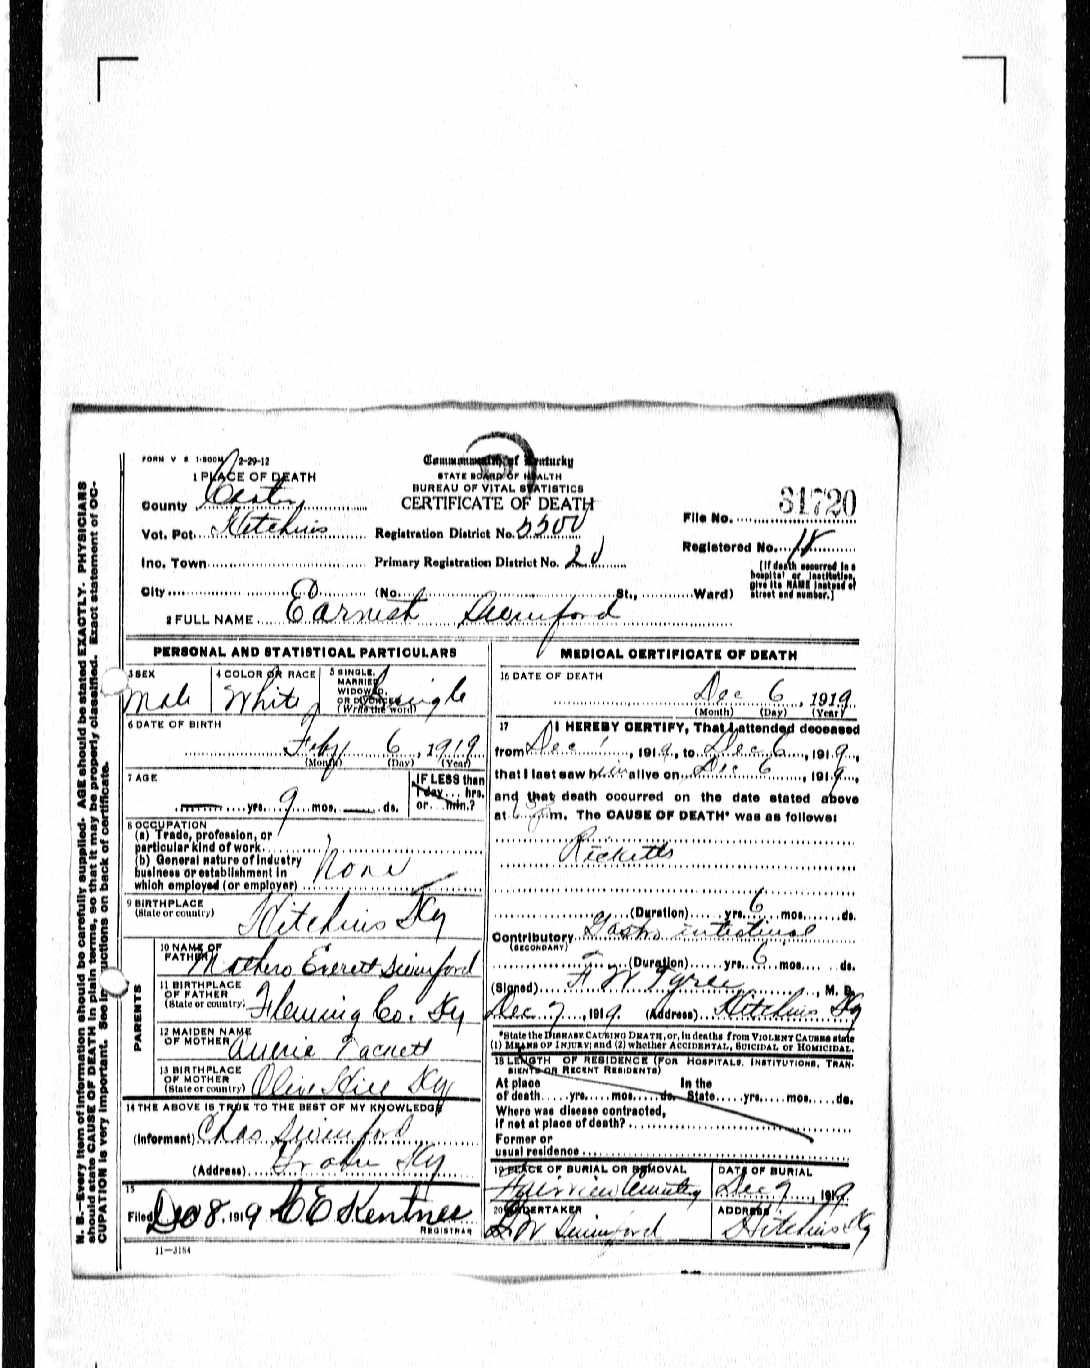 FORM V S 1-500M 2-29-12
1 PLACE OF DEATH
County Carter
Vot. Pct. Hitchins
Inc. Town
City
Commonwealth of Kentucky
STATE BOARD OF HEALTH
BUREAU OF VITAL STATISTICS
CERTIFICATE OF DEATH
Registration District No.
Primary Registration District No. 20
(No. St., Ward)
File No. 31720
Registered No. 18
[If death occurred in a
hospital or institution,
give its NAME instead of
street and number.]
2 FULL NAME Earnest
PERSONAL AND STATISTICAL PARTICULARS
3 SEX
Male
4 COLOR OR RACE
White
5 SINGLE,
MARRIED,
WIDOWED,
OR DIVORCED
(Write the word)
Single
6 DATE OF BIRTH
Feby 6, 1919
(Month) (Day) (Year)
7 AGE
yrs. 9 mos. ds.
IF LESS than
1 day hrs.
or min.?
8 OCCUPATION
(a) Trade, profession, or
particular kind of work
(b) General nature of industry
business or establishment in
which employed (or employer)
None
9 BIRTHPLACE
(State or country)
Hitchins Ky
PARENTS
10 NAME OF
FATHER Everett
11 BIRTHPLACE
OF FATHER
(State or country) Fleming Co. Ky
12 MAIDEN NAME
OF MOTHER
13 BIRTHPLACE
OF MOTHER
(State or country) Olive Hill Ky
14 THE ABOVE IS TRUE TO THE BEST OF MY KNOWLEDGE
(Informant) Chas
(Address) Ky
15
Filed Dec 8, 1919
REGISTRAR
11—3184
MEDICAL CERTIFICATE OF DEATH
16 DATE OF DEATH
Dec 6, 1919
(Month) (Day) (Year)
17 I HEREBY CERTIFY, That I attended deceased
from Dec 1, 1919, to Dec 6, 1919,
that I last saw him alive on Dec 6, 1919,
and that death occurred on the date stated above
at m. The CAUSE OF DEATH* was as follows:
Ricketts
(Duration) yrs. 6 mos. ds.
Contributory Gastro intestinal
(SECONDARY)
(Duration) yrs. 6 mos. ds.
(Signed) , M. D.
Dec 7, 1919. (Address) Hitchins Ky
*State the DISEASE CAUSING DEATH, or, in deaths from VIOLENT CAUSES state
(1) MEANS OF INJURY; and (2) whether ACCIDENTAL, SUICIDAL or HOMICIDAL.
18 LENGTH OF RESIDENCE (FOR HOSPITALS, INSTITUTIONS, TRAN-
SIENTS OR RECENT RESIDENTS)
At place In the
of death yrs. mos. ds. State yrs. mos. ds.
Where was disease contracted,
if not at place of death?
Former or
usual residence
19 PLACE OF BURIAL OR REMOVAL
DATE OF BURIAL
Dec 9, 1919
20 UNDERTAKER
ADDRESS
Hitchins Ky
N. B.—Every item of information should be carefully supplied. AGE should be stated EXACTLY. PHYSICIANS
should state CAUSE OF DEATH in plain terms, so that it may be properly classified. Exact statement of OC-
CUPATION is very important. See instructions on back of certificate.